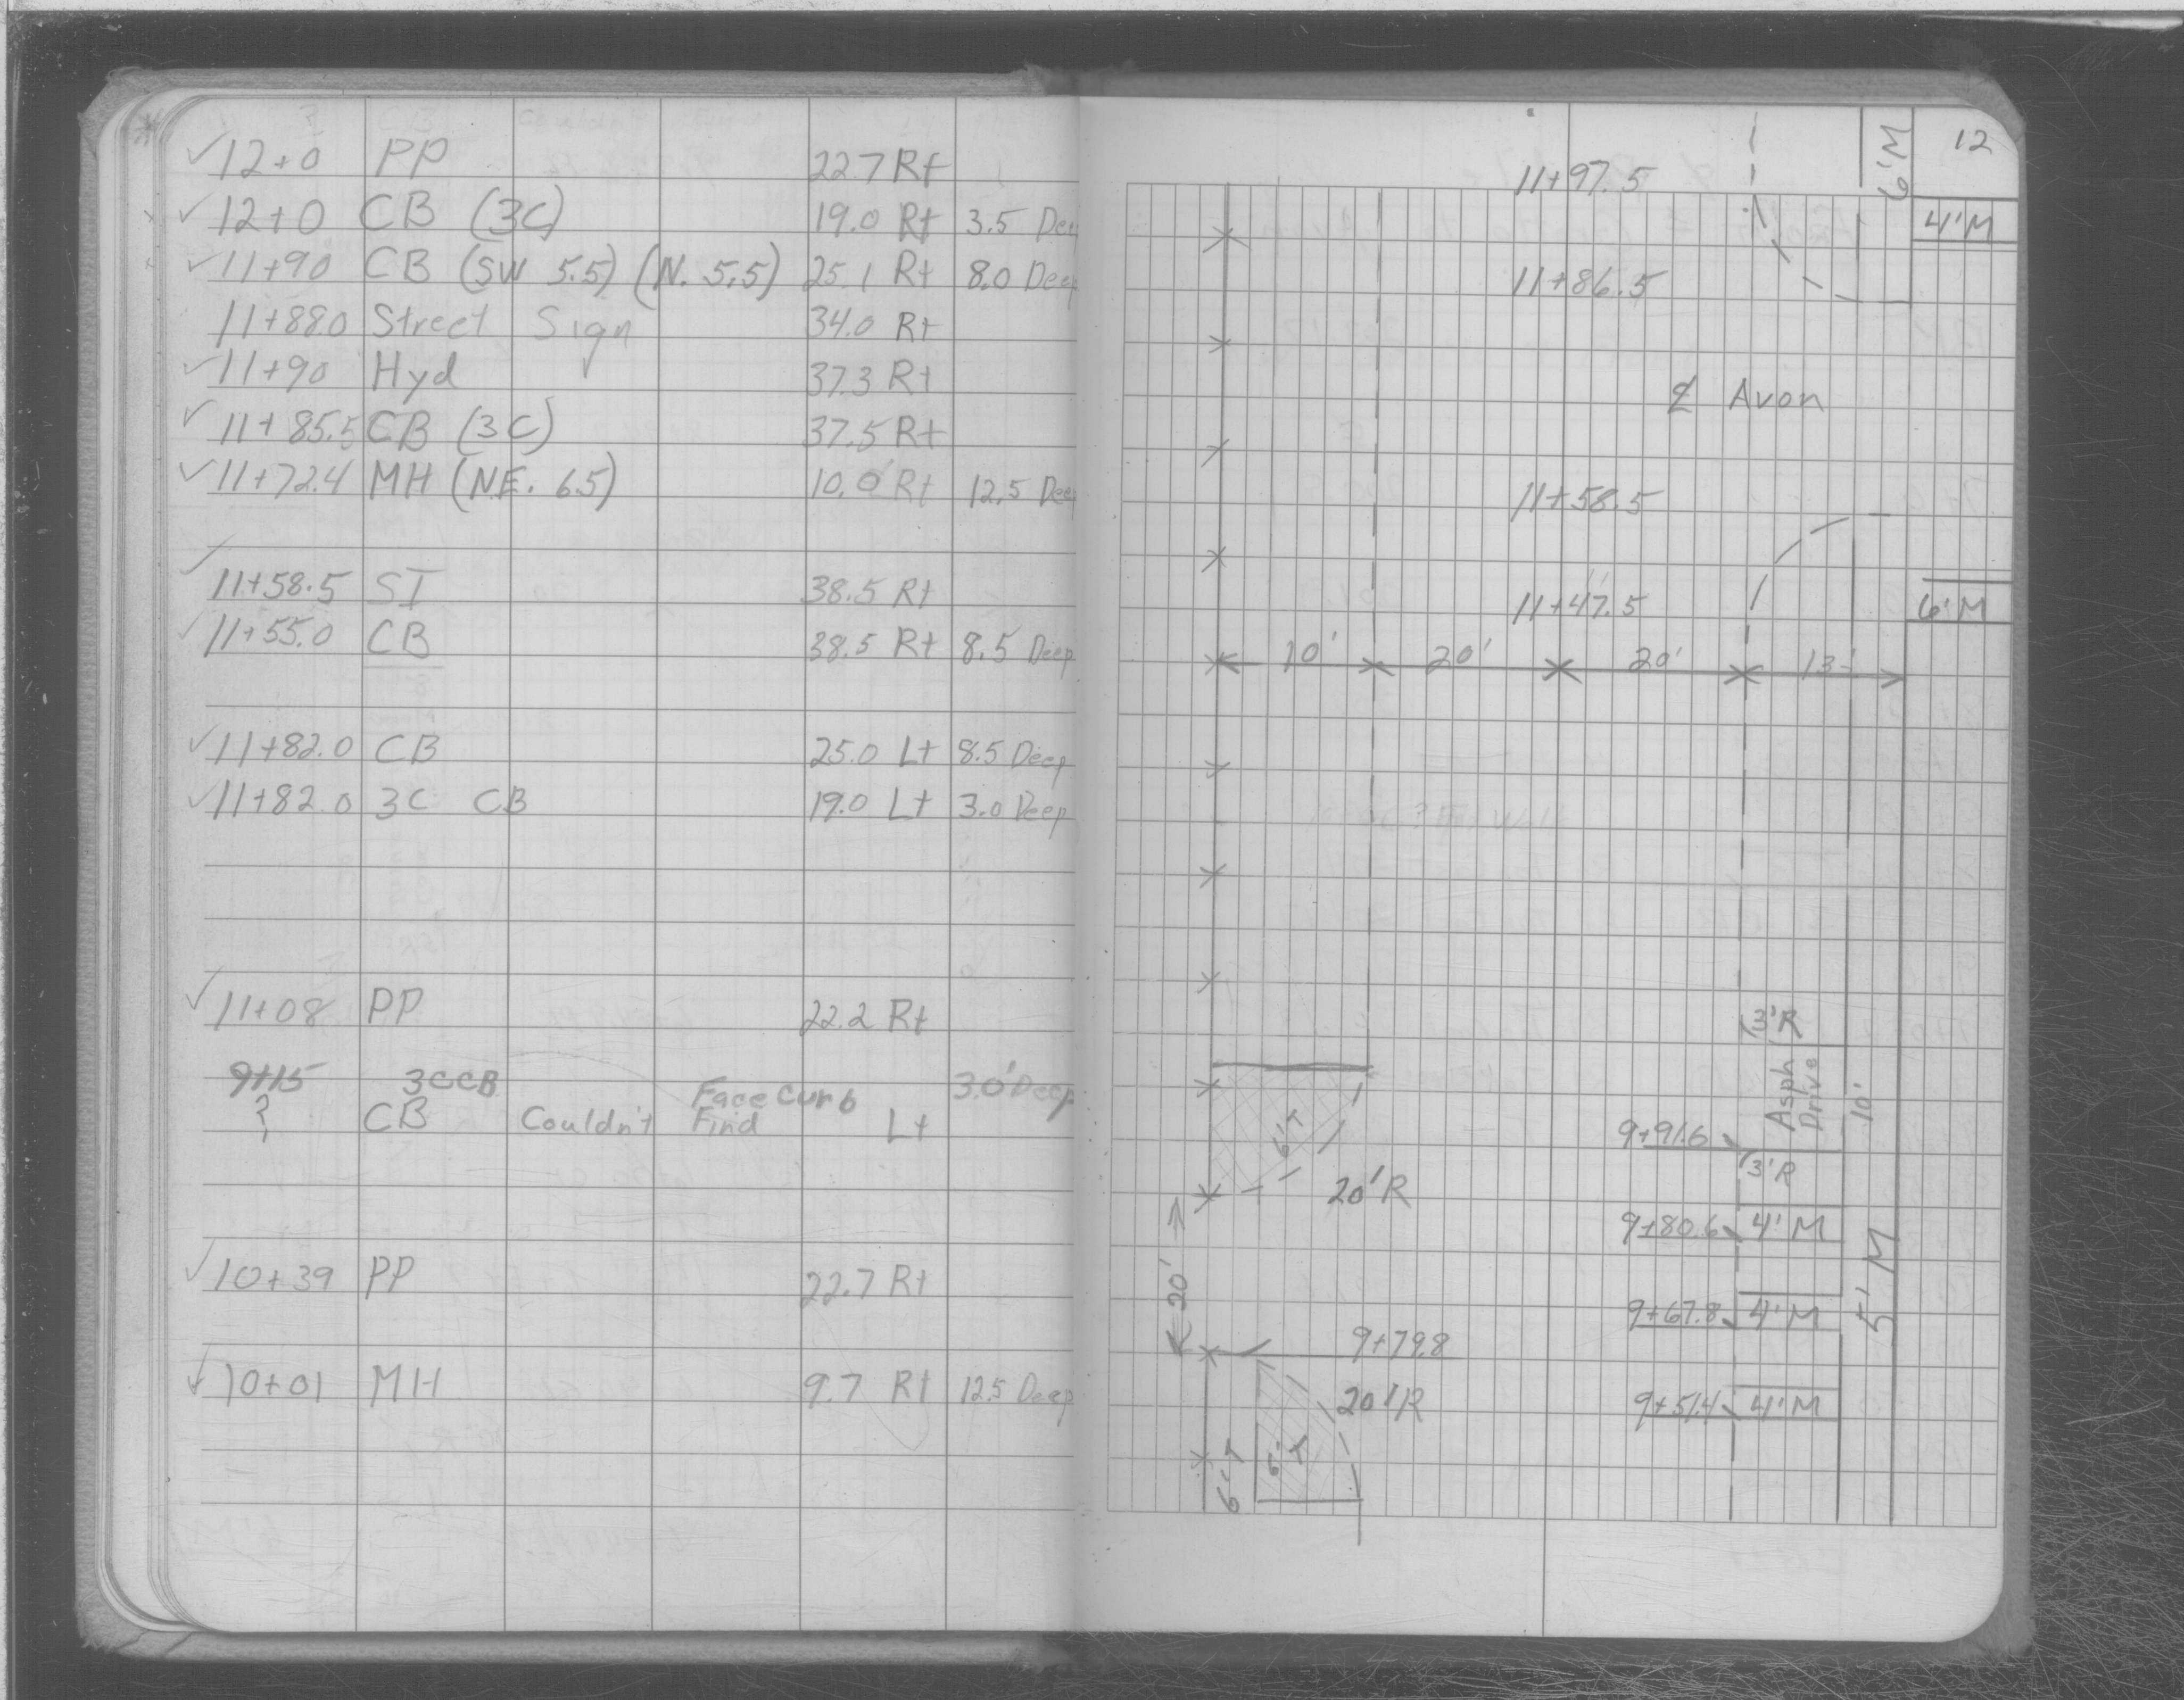 12+0 PP 22.7 Rt
12+0 CB (3C) 19.0 Rt 3.5 Deep
11+90 CB (SW 5.5) (N. 5.5) 25.1 Rt 8.0 Deep
11+88.0 Street Sign 34.0 Rt
11+90 Hyd 37.3 Rt
11+85.5 CB (3C) 37.5 Rt
11+72.4 MH (NE. 6.5) 10.0 Rt 12.5 Deep
11+58.5 SI 38.5 Rt
11+55.0 CB 38.5 Rt 8.5 Deep
11+82.0 CB 25.0 Lt 8.5 Deep
11+82.0 3C CB 19.0 Lt 3.0 Deep
11+08 PP 22.2 Rt
9+15 3CCB Face Curb 3.0' Deep
? CB Couldn't Find Lt
10+39 PP 22.7 Rt
10+01 MH 9.7 Rt 12.5 Deep
12
6'M
11+97.5
4'M
11+86.5
℄ Avon
11+58.5
11+47.5
6'M
10' 20' 20' 13'
3'R
Asph Drive
10'
9+91.6
3'R
6'T
20'R
9+80.6 4'M
20'
5'M
9+67.8 4'M
9+79.8
20'R
9+51.4 4'M
6'T
6'T